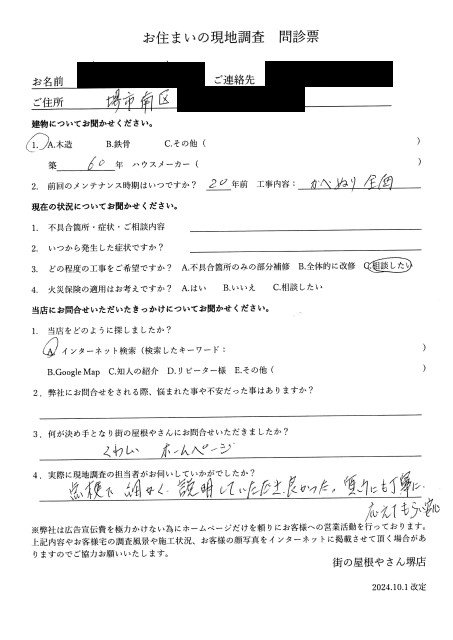 お住まいの現地調査　問診票
お名前　ご連絡先
ご住所　堺市南区
建物についてお聞かせください。
1. A.木造　B.鉄骨　C.その他（　）
築 60 年　ハウスメーカー（　）
2. 前回のメンテナンス時期はいつですか？ 20 年前　工事内容： かべぬり 全面
現在の状況についてお聞かせください。
1. 不具合箇所・症状・ご相談内容
2. いつから発生した症状ですか？
3. どの程度の工事をご希望ですか？ A.不具合箇所のみの部分補修　B.全体的に改修　C.相談したい
4. 火災保険の適用はお考えですか？ A.はい　B.いいえ　C.相談したい
当店にお問合せいただいたきっかけについてお聞かせください。
1. 当店をどのように探しましたか？
A. インターネット検索（検索したキーワード：　）
B.Google Map　C.知人の紹介　D.リピーター様　E.その他（　）
2．弊社にお問合せをされる際、悩まれた事や不安だった事はありますか？
3．何が決め手となり街の屋根やさんにお問合せいただきましたか？
くわしい　ホームページ
4．実際に現地調査の担当者がお伺いしていかがでしたか？
点検で 細かく 説明していただき良かった。質問にも丁寧に
応えてもらい
※弊社は広告宣伝費を極力かけない為にホームページだけを頼りにお客様への営業活動を行っております。
上記内容やお客様宅の調査風景や施工状況、お客様の顔写真をインターネットに掲載させて頂く場合があ
りますのでご協力お願いいたします。
街の屋根やさん堺店
2024.10.1 改定